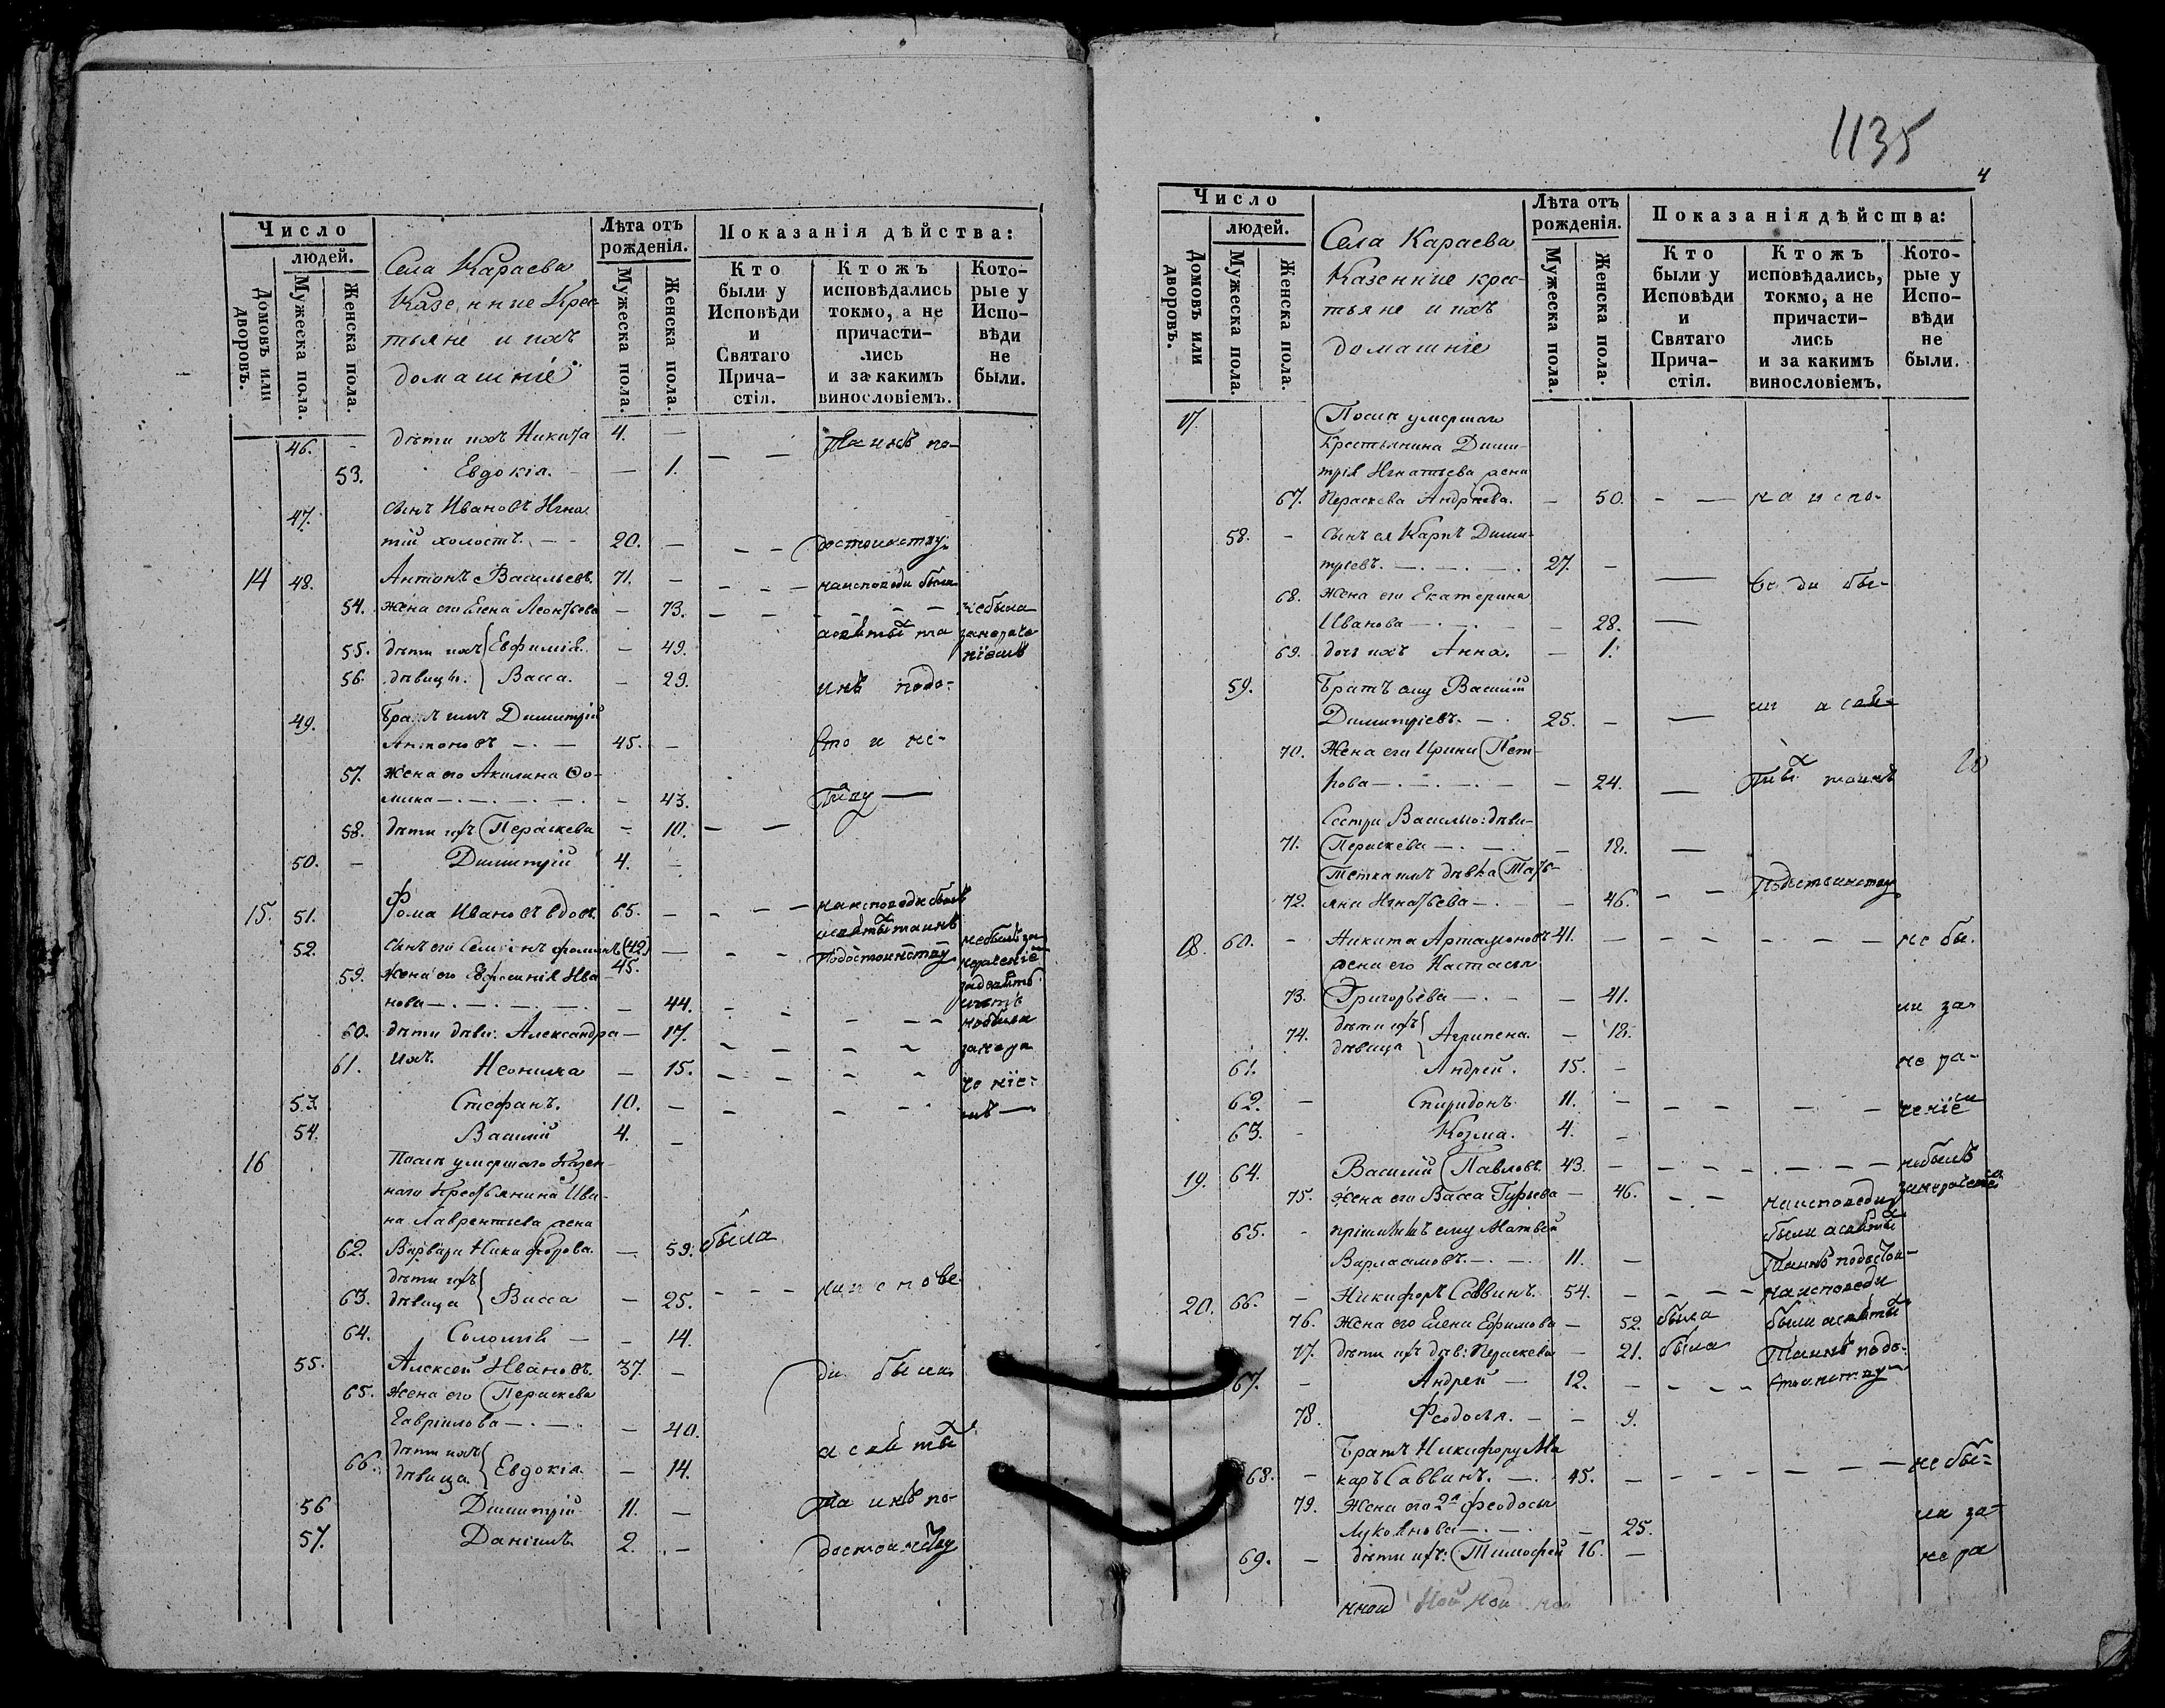 Число
людей.
Домовъ или дворовъ.
Мужеска пола.
Женска пола.
Села Караева
Казенные Крес-
тьяне и ихъ
домашніе
Лѣта отъ
рожденія.
Мужеска пола.
Женска пола.
Показанія дѣйства:
Кто
были у
Исповѣди
и
Святаго
Прича-
стія.
Ктожъ
исповѣдались
токмо, а не
причасти-
лись
и за какимъ
винословіемъ.
Кото-
рые у
Испо-
вѣди
не
были.
46. - дѣти ихъ Никита 4. —
53. Евдокіа. — 1.
47. сынъ Ивановъ Игна
тій холостъ. — 20. —
14 48. Антонъ Васильевъ. 71. — на исповеди были
54. жена его Елена Леонтьева — 73. не была
55. дѣти ихъ Евфиміа. — 49.
56. дѣвицы. Васса. — 29.
49. Братъ имъ Димитрій
Антоновъ — 45. —
57. жена его Акилина Ѳо-
мина — 43.
58. дѣти ихъ Параскева — 10.
50. — Димитрій 4. —
15. 51. Фома Ивановъ вдовъ. 65. — на исповеди былъ
52. сынъ его Семіонъ Фоминъ (42) — 45.
59. жена его Ефросинія Ива
нова — 44.
60. дѣти дѣви: Александра — 17. не была
61. ихъ. Неонила — 15.
53. Стефанъ. 10. —
54. Василій 4. —
16 Послѣ умершаго Казен-
наго Крестьянина Ива-
на Лаврентьева жена
62. Варвара Никифорова. — 59. была
63. дѣти ихъ дѣвица Васса — 25. на испове
64. Соломія — 14.
55. Алексей Ивановъ. 37. — ди были
65. жена его Параскева
Гавріилова — 40.
66. дѣти ихъ дѣвица Евдокіа — 14.
56 Димитрій 11. —
57. Даніилъ. 2. —
1135
4
Число
людей.
Домовъ или дворовъ.
Мужеска пола.
Женска пола.
Села Караева
Казенные крес-
тьяне и ихъ
домашніе
Лѣта отъ
рожденія.
Мужеска пола.
Женска пола.
Показанія дѣйства:
Кто
были у
Исповѣди
и
Святаго
Прича-
стія.
Ктожъ
исповѣдались,
токмо, а не
причасти-
лись
и за какимъ
винословіемъ.
Кото-
рые у
Испо-
вѣди
не
были.
17. Послѣ умершаго
Крестьянина Дими-
трія Игнатьева жена
67. Параскева Андреева. — 50. на испо-
58. - сынъ ея Карпъ Дими-
тріевъ. — 27. —
68. жена его Екатерина
Иванова — 28.
69. дочь ихъ Анна. — 1.
59. Братъ ему Василій
Димитріевъ. — 25. —
70. Жена его Ирина Пет-
рова — 24.
Сестра Василію: дѣви-
71. Параскева — 18.
Тетка имъ дѣвка Тать-
72. яна Игнатьева — 46.
18. 60. - Никита Артамоновъ 41. — не бы-
жена его Настасья
73. Григорьева — 41. ли за
74. дѣти ихъ дѣвица Агрипена. — 18.
61. Андрей. 15. —
62. - Спиридонъ. 11. —
63. - Козма. 4. —
19. 64. Василій Павловъ. 43. — не былъ
75. жена его Васса Гурьева — 46. на исповеди
65. - пріимышъ ему Матвей
Варлаамовъ. — 11. —
20. 66. - Никифоръ Саввинъ. 54. — на исповеди
76. жена его Елена Ефимова — 52. была
77. дѣти ихъ дѣв: Параскева — 21. была
67. - Андрей — 12. —
78. Феодосія. — 9.
Братъ Никифору Ма
68. - каръ Саввинъ. — 45. — не бы=
79. Жена его 2я Феодосья
Лукоянова — 25. ли за
69. - дѣти ихъ: Тимофей 16. — нера